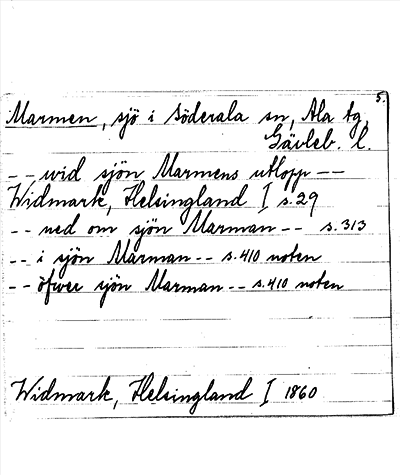 5.
Marmen, sjö i Söderala sn, Ala tg,
Gävleb. l.
-- wid sjön Marmens utlopp --
Widmark, Helsingland I s.29
-- ned om sjön Marman -- s.313
-- i sjön Marman -- s.410 noten
-- öfwer sjön Marman -- s.410 noten
Widmark, Helsingland I 1860